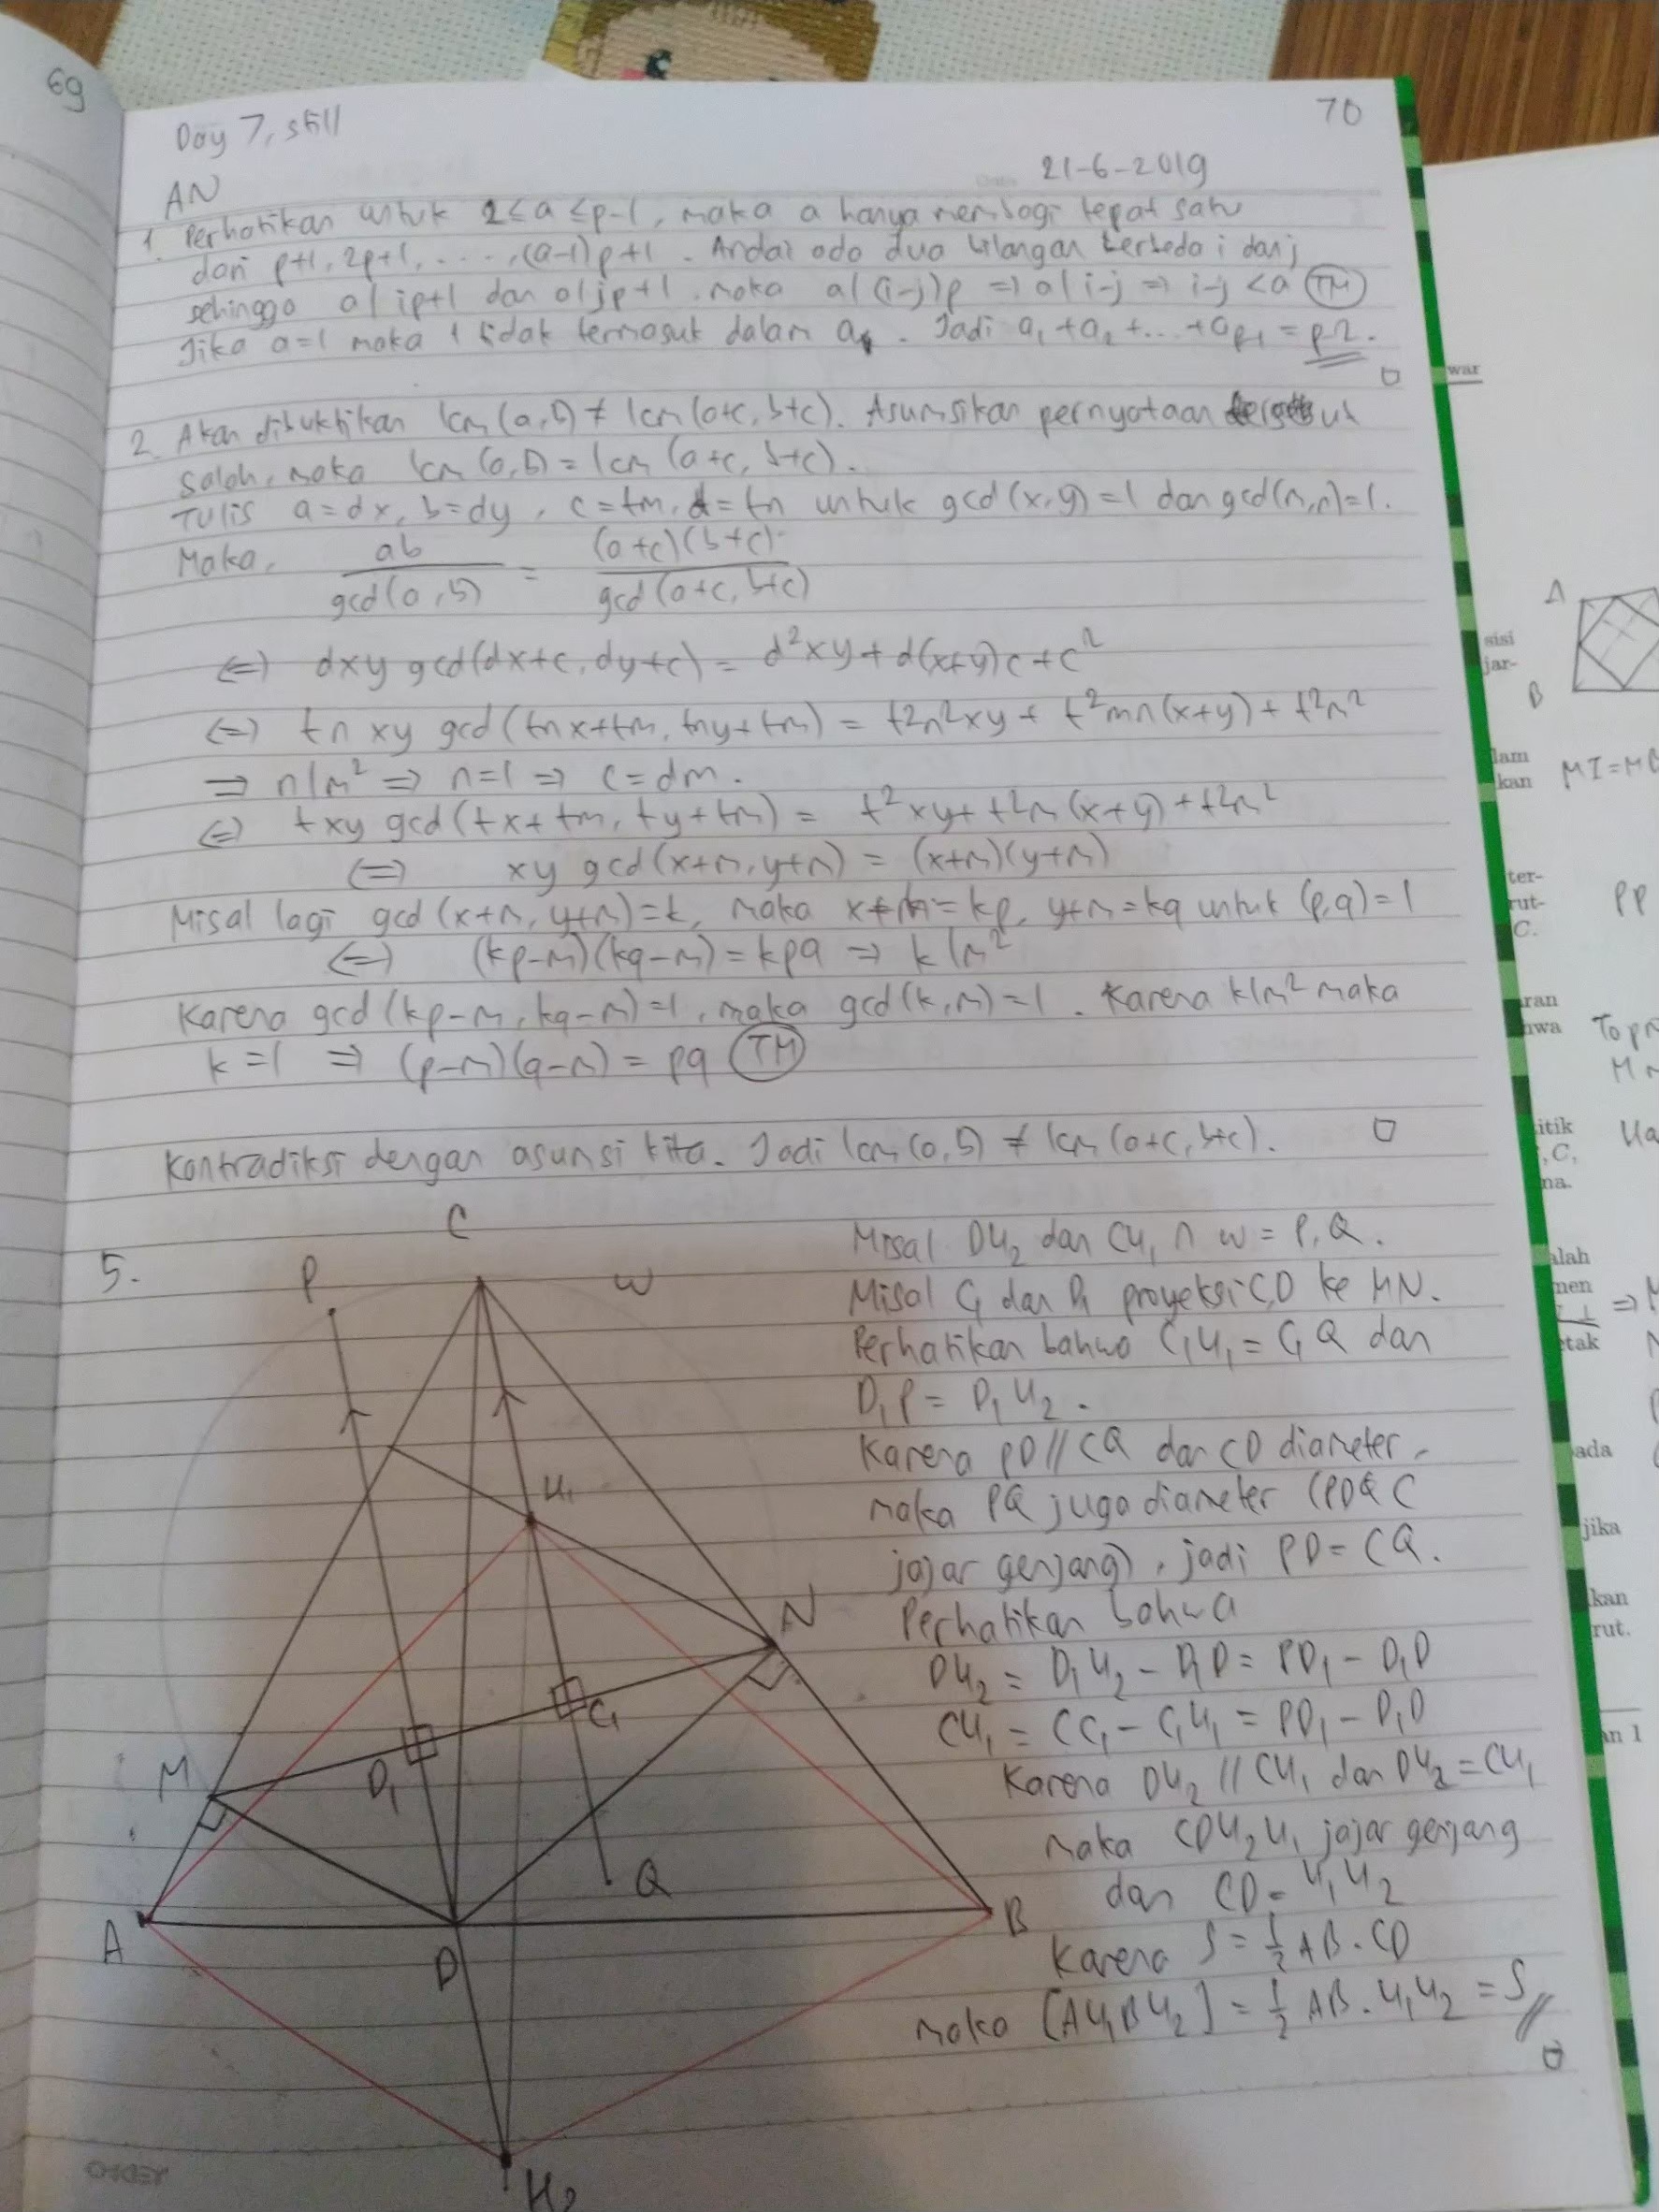 69
70
Day 7, still
21-6-2019
AN
1. Perhatikan untuk 2 ≤ a ≤ p-1, maka a hanya membagi tepat satu
dari p+1, 2p+1, ...., (a-1)p+1. Andai ada dua bilangan berbeda i dan j
sehingga a | ip+1 dan a | jp+1. maka a | (i-j)p => a | i-j => i-j < a (TM)
Jika a=1 maka 1 tidak termasuk dalam a₁. Jadi a₁ + a₂ + ... + a_{p-1} = p-2.
□
2. Akan dibuktikan lcm(a,b) ≠ lcm(a+c, b+c). Asumsikan pernyataan tersebut
salah, maka lcm(a,b) = lcm(a+c, b+c).
Tulis a=dx, b=dy, c=tm, d=tn untuk gcd(x,y)=1 dan gcd(m,n)=1.
Maka, ab / gcd(a,b) = (a+c)(b+c) / gcd(a+c, b+c)
<=> dxy gcd(dx+c, dy+c) = d²xy + d(x+y)c + c²
<=> tn xy gcd(tnx+tm, tny+tm) = t²n²xy + t²mn(x+y) + t²m²
=> n|m² => n=1 => c=dm.
<=> txy gcd(tx+tm, ty+tm) = t²xy + t²m(x+y) + t²m²
<=> xy gcd(x+m, y+m) = (x+m)(y+m)
Misal lagi gcd(x+m, y+m)=k, maka x+m=kp, y+m=kq untuk (p,q)=1
<=> (kp-m)(kq-m) = kpq => k|m²
Karena gcd(kp-m, kq-m)=1, maka gcd(k,m)=1. Karena k|m² maka
k=1 => (p-m)(q-m) = pq (TM)
Kontradiksi dengan asumsi kita. Jadi lcm(a,b) ≠ lcm(a+c, b+c). □
5.
C
P
W
H₁
N
C₁
M
D₁
Q
A
D
B
H₂
Misal DH₂ dan CH₁ ∩ w = P, Q.
Misal C₁ dan D₁ proyeksi C,D ke MN.
Perhatikan bahwa C₁H₁ = C₁Q dan
D₁P = D₁H₂.
Karena PD // CQ dan CD diameter,
maka PQ juga diameter (PDQC
jajar genjang), jadi PD = CQ.
Perhatikan bahwa
DH₂ = D₁H₂ - D₁D = PD₁ - D₁D
CH₁ = CC₁ - C₁H₁ = PD₁ - D₁D
Karena DH₂ // CH₁ dan DH₂ = CH₁
maka CDH₂H₁ jajar genjang
dan CD = H₁H₂
Karena S = 1/2 AB . CD
maka [AH₁BH₂] = 1/2 AB . H₁H₂ = S //
□
war
A
B
sisi
jar-
lam
kan
MI=MB
ter-
rut-
C.
PP
ran
hwa
itik
, C,
na.
alah
men
etak
ada
jika
kan
rut.
an 1